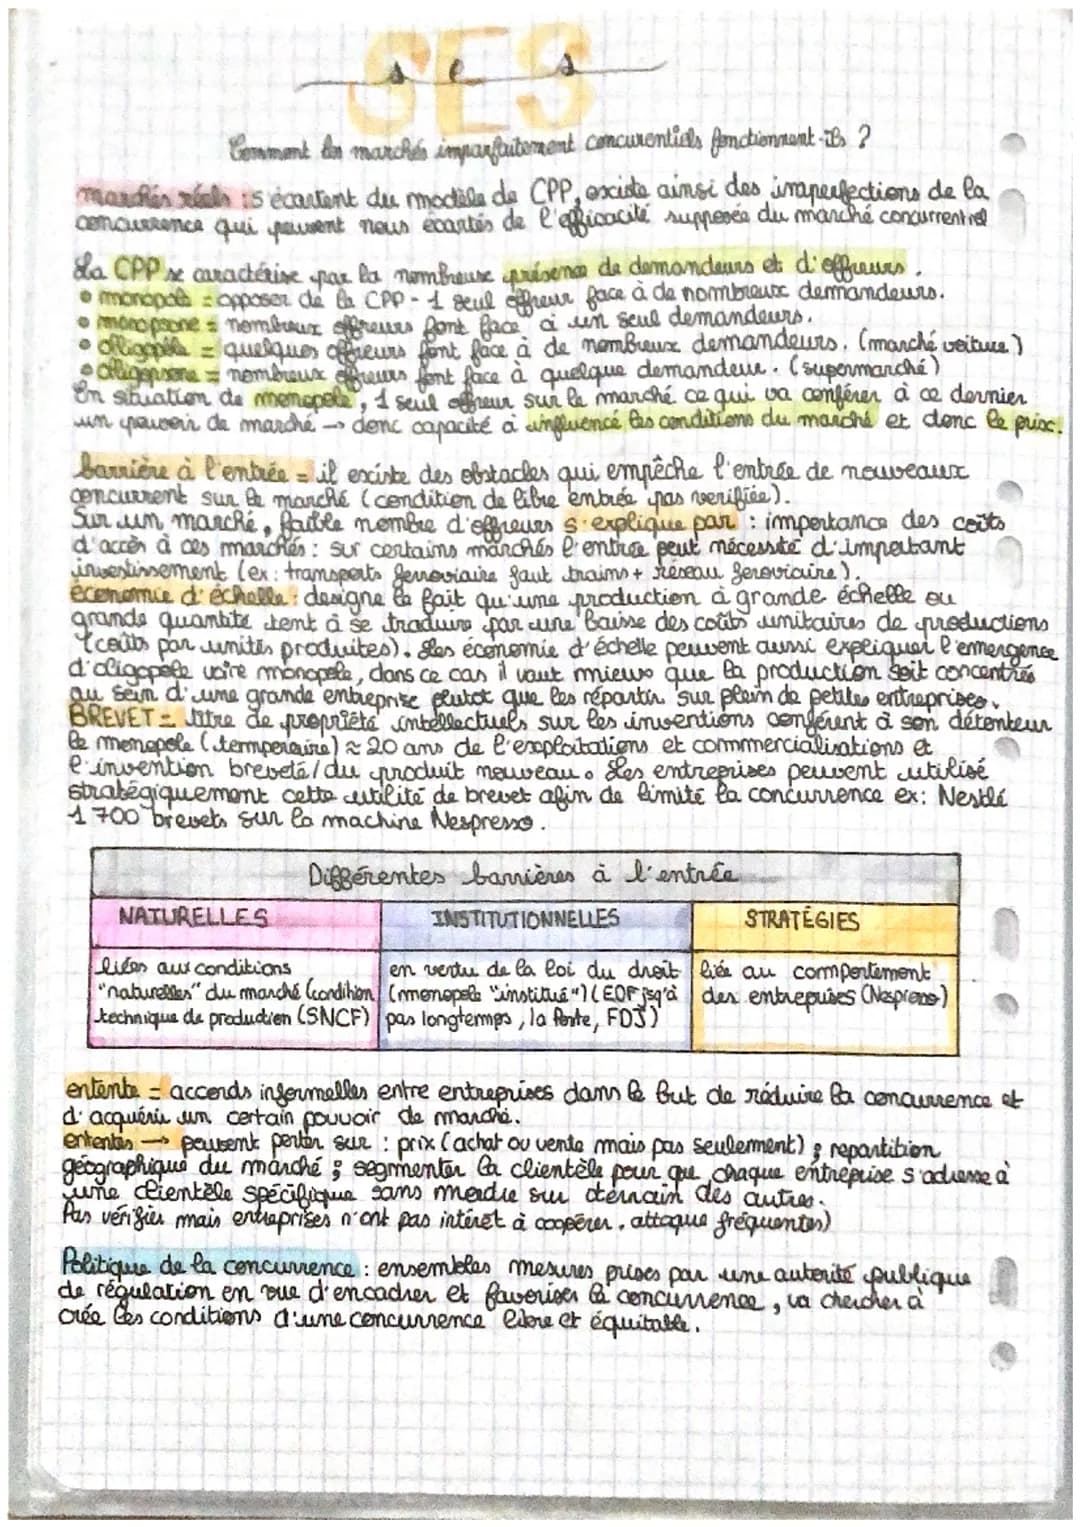 SES
s e s
Comment les marchés imparfaitement concurentiels fonctionnent-ils ?
marchés réels : s'écartent du modèle de CPP, existe ainsi des imperfections de la
concurrence qui peuvent nous écartés de l'efficacité supposée du marché concurrentiel
La CPP se caractérise par la nombreuse présence de demandeurs et d'offreurs.
• monopole = opposer de la CPP - 1 seul offreur face à de nombreux demandeurs.
• monopsone = nombreux offreurs font face à un seul demandeurs.
• oligopole = quelques offreurs font face à de nombreux demandeurs. (marché voiture)
• oligopsone = nombreux offreurs font face à quelque demandeur. (supermarché)
En situation de monopole, 1 seul offreur sur le marché ce qui va conférer à ce dernier
un pouvoir de marché → donc capacité à influencé les conditions du marché et donc le prix.
barrière à l'entrée = il existe des obstacles qui empêche l'entrée de nouveaux
concurrent sur le marché (condition de libre entrée pas verifiée).
Sur un marché, faible nombre d'offreurs s'explique par : importance des coûts
d'accès à ces marchés : sur certains marchés l'entrée peut nécessité d'important
investissement (ex: transports ferroviaire faut trains + réseau feroviaire).
économie d'échelle : designe le fait qu'une production à grande échelle ou
grande quantité tent à se traduire par une baisse des coûts unitaires de productions
(coûts par unités produites). Les économie d'échelle peuvent aussi expliquer l'émergence
d'oligopole voire monopole, dans ce cas il vaut mieux que la production soit concentrés
au sein d'une grande entreprise plutot que les répartir sur plein de petites entreprises.
BREVET = titre de propriété intellectuels sur les inventions conférent à son détenteur
le monopole (temporaire) ≈ 20 ans de l'exploitations et commercialisations et
l'invention breveté/du produit nouveau. Les entreprises peuvent utilisé
stratégiquement cette utilité de brevet afin de limité la concurrence ex: Nestlé
1 700 brevets sur la machine Nespresso.
Différentes barrières à l'entrée
NATURELLES INSTITUTIONNELLES STRATÉGIES
liées aux conditions en vertu de la loi du droit liée au comportement
"naturelles" du marché (condition (monopole "institué") (EDF jsq'à des entreprises (Nespresso)
technique de production (SNCF) pas longtemps, la Poste, FDJ)
entente = accords informelles entre entreprises dans le but de réduire la concurrence et
d'acquérir un certain pouvoir de marché.
ententes → peuvent porter sur : prix (achat ou vente mais pas seulement) ; repartition
géographique du marché ; segmenter la clientèle pour que chaque entreprise s'adresse à
une clientèle spécifique sans mordre sur terrain des autres.
Pas vérifier mais entreprises n'ont pas intérêt à coopérer. attaque fréquentes)
Politique de la concurrence : ensembles mesures prises par une autorité publique
de régulation en vue d'encadrer et favoriser la concurrence, va chercher à
crée les conditions d'une concurrence libre et équitable.